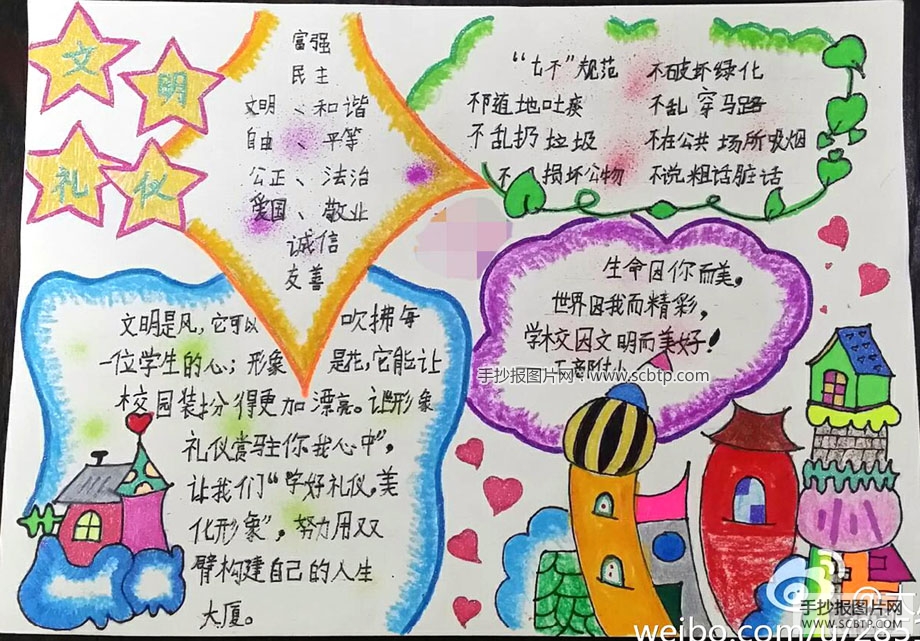 文 明
礼 仪
富强
民主
文明、和谐
自由、平等
公正、法治
爱国、敬业
诚信
友善
"七不"规范
不随地吐痰
不乱扔垃圾
不 损坏公物
不破坏绿化
不乱穿马路
不在公共场所吸烟
不说粗话脏话
生命因你而美,
世界因我而精彩,
学校因文明而美好!
手抄报图片网 www.scbtp.com
文明是风,它可以 吹拂每
一位学生的心;形象 是花,它能让
校园装扮得更加漂亮。让"形象
礼仪常驻你我心中",
让我们"学好礼仪,美
化形象",努力用双
臂构建自己的人生
大厦。
手抄报图片网
www.SCBTP.COM